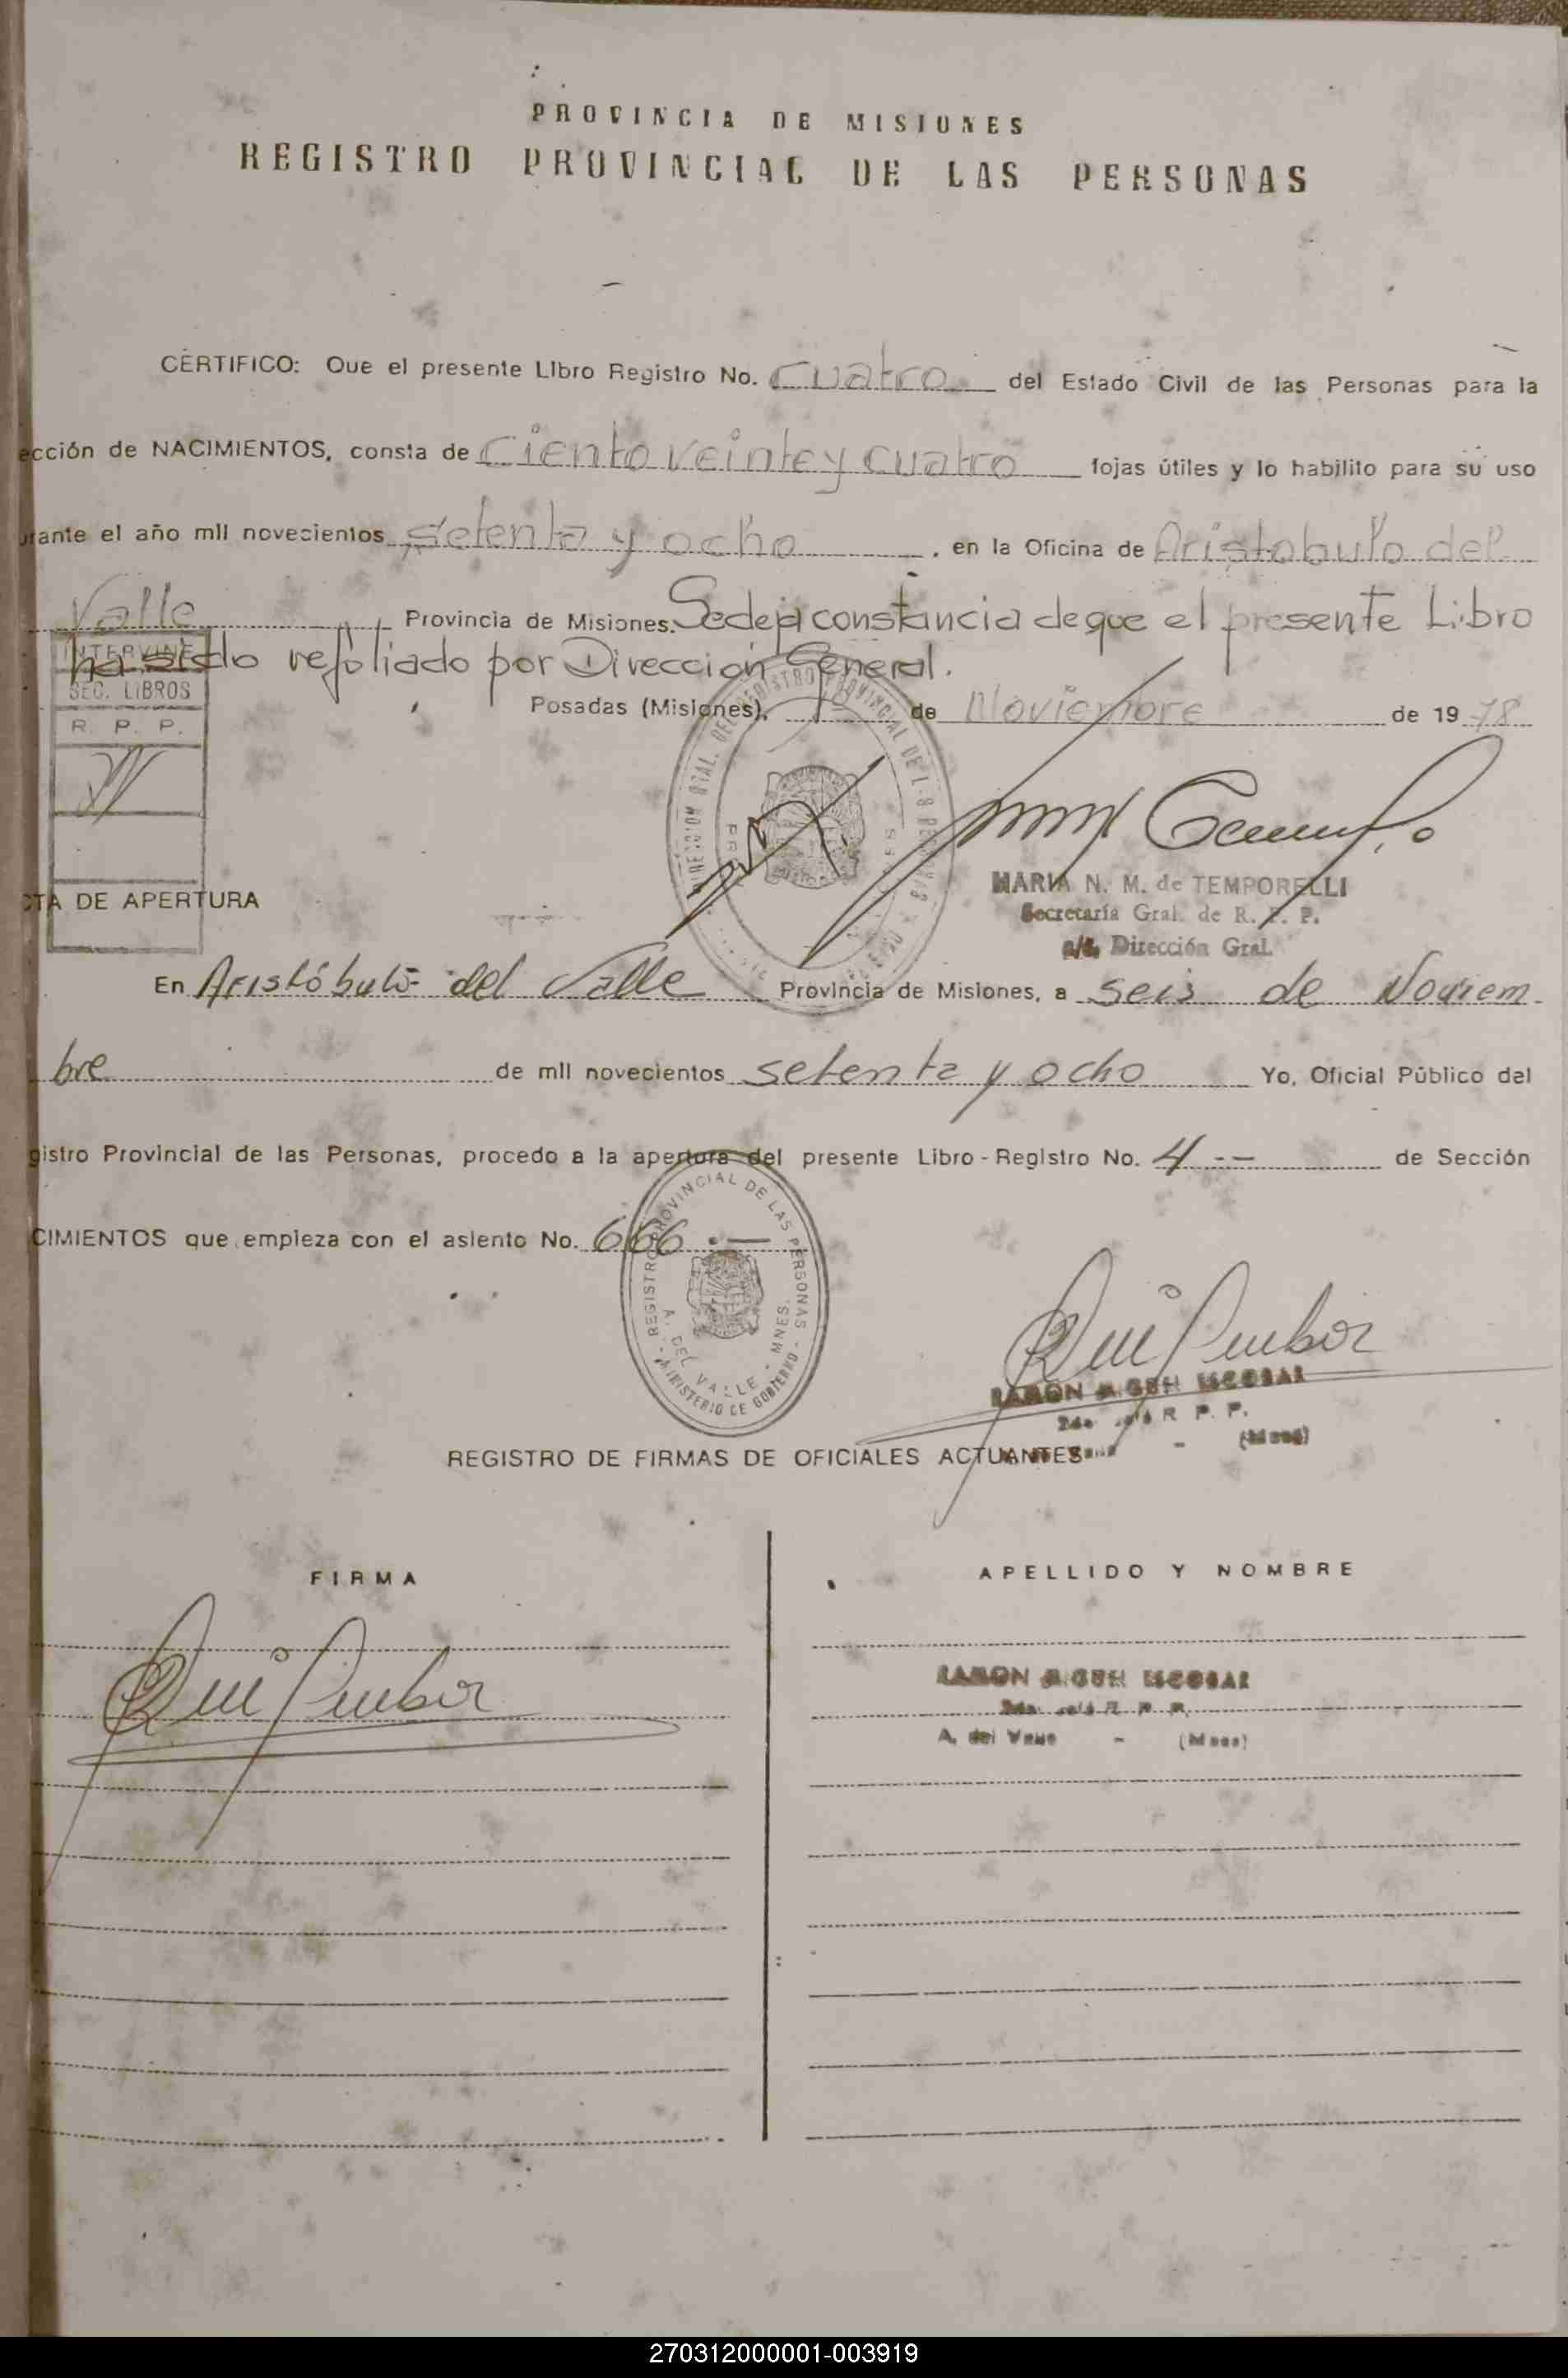 PROVINCIA DE MISIONES
REGISTRO PROVINCIAL DE LAS PERSONAS
CERTIFICO: Que el presente Libro Registro No. cuatro del Estado Civil de las Personas para la
ección de NACIMIENTOS, consta de ciento veinte y cuatro fojas útiles y lo habilito para su uso
urante el año mil novecientos setenta y ocho, en la Oficina de Aristobulo del
Valle Provincia de Misiones. Se deja constancia de que el presente Libro
ha sido refoliado por Dirección General.
INTERVINE
SEC. LIBROS
R. P. P.
Posadas (Misiones), de Noviembre de 1978
MARIA N. M. de TEMPORELLI
Secretaría Gral. de R. P. P.
a/c. Dirección Gral.
CTA DE APERTURA
En Aristóbulo del Valle Provincia de Misiones, a seis de Noviem
bre de mil novecientos setenta y ocho Yo, Oficial Público del
gistro Provincial de las Personas, procedo a la apertura del presente Libro - Registro No. 4 -- de Sección
CIMIENTOS que empieza con el asiento No. 666.—
REGISTRO PROVINCIAL DE LAS PERSONAS
A. DEL VALLE - MNES.
MINISTERIO DE GOBIERNO
RAMON ESCOBAR
R. P. P.
(Mnes)
REGISTRO DE FIRMAS DE OFICIALES ACTUANTES
FIRMA
APELLIDO Y NOMBRE
RAMON ESCOBAR
R. P. P.
A. del Valle - (Mnes)
270312000001-003919